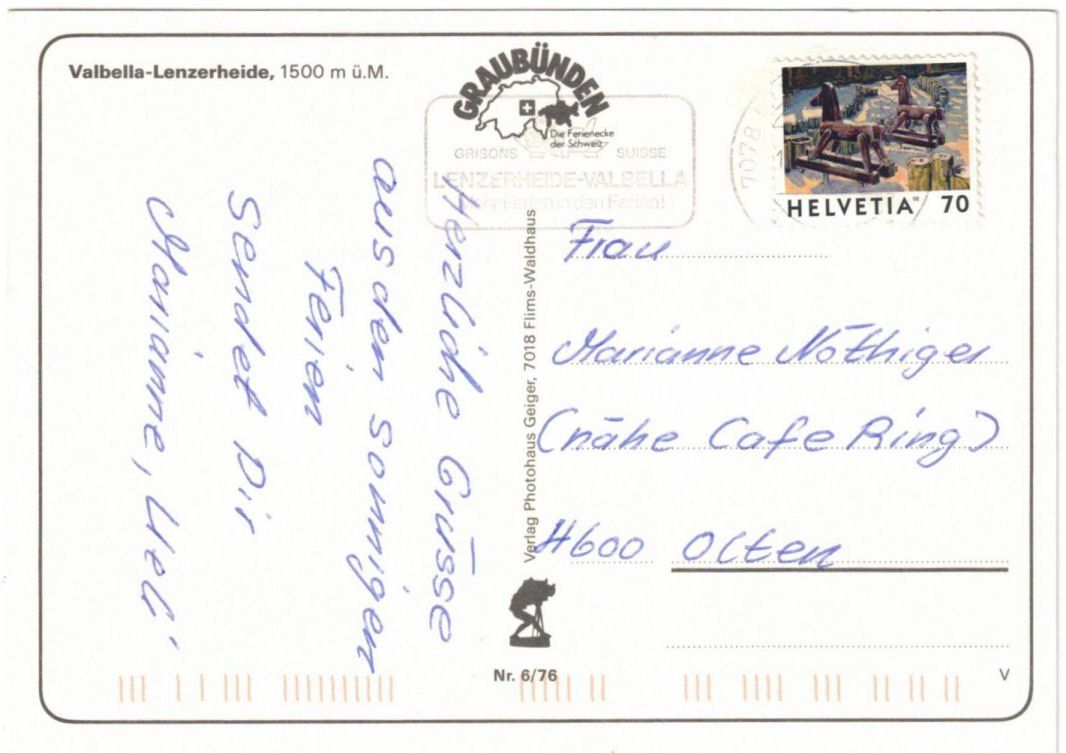 Valbella-Lenzerheide, 1500 m ü.M.
GRAUBÜNDEN
Die Ferienecke
der Schweiz
GRISONS SUISSE
LENZERHEIDE-VALBELLA
Mehr Ferien in den Ferien!
7078
HELVETIA 70
Herzliche Grüsse
aus den Sonnigen
Ferien
Sendet Dir
Marianne, Ueli
Verlag Photohaus Geiger, 7018 Flims-Waldhaus
Frau
Marianne Nöthiger
(nähe Cafe Ring)
4600 Olten
Nr. 6/76
V